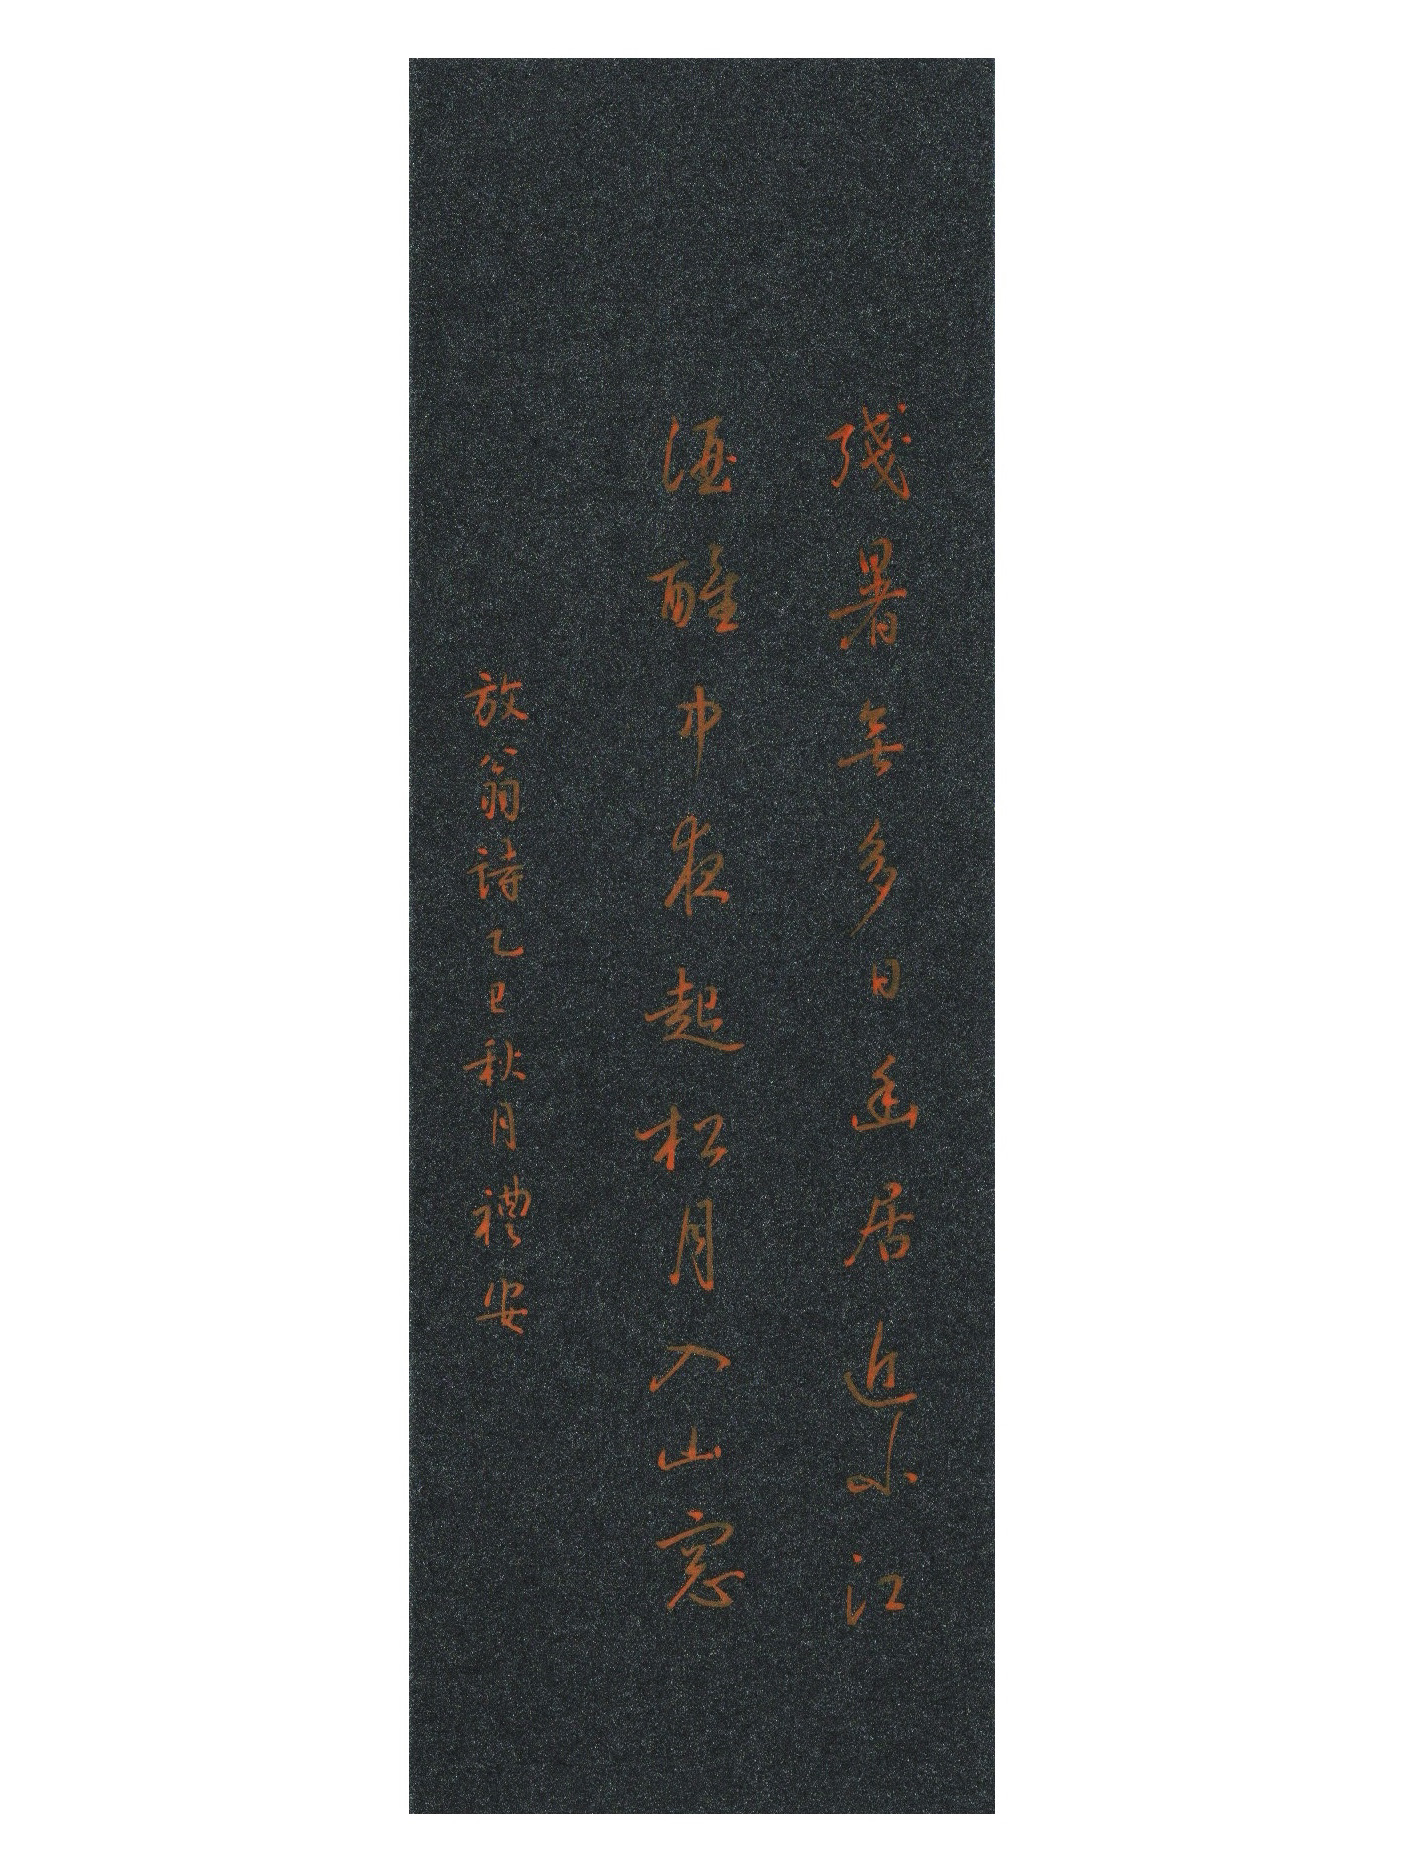 殘暑無多日幽居近小江
酒醒中夜起松月入山窓
放翁詩乙巳秋月禮安